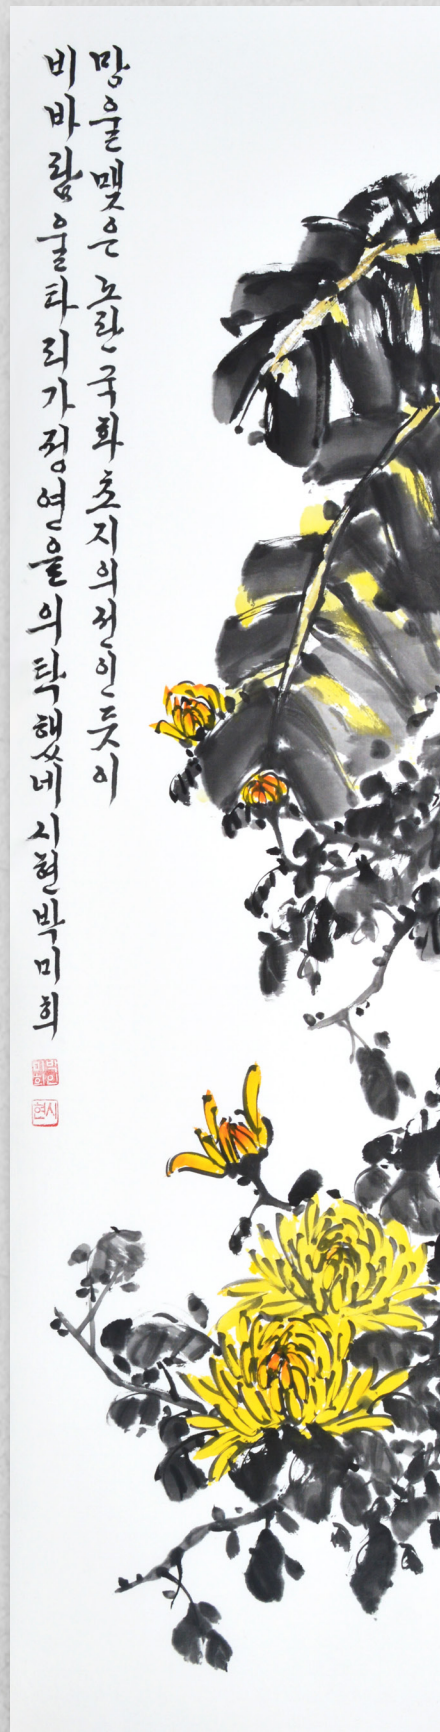 망울맺은노란국화초지의전인듯이
비바람울타리가정연을의탁했네시현박미희
시현